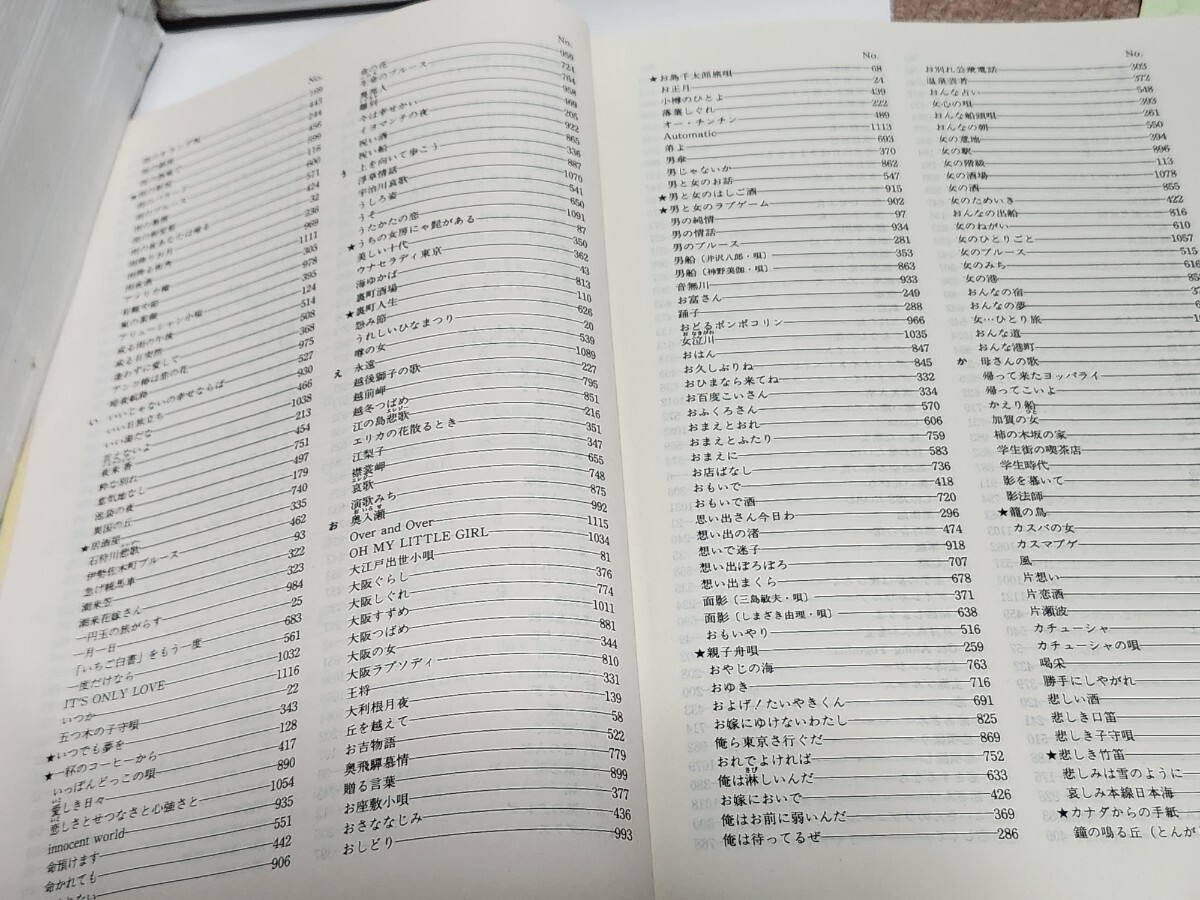 No.
雨降る街角
雨夜酒 969
アメリカ橋 1111
有難や節 305
嵐の素顔 978
アリューシャン小唄 395
或る雨の午後 124
或る日突然 514
逢わずに愛して 508
アンコ椿は恋の花 368
暗夜航路 975
い いいじゃないの幸せならば 527
いい日旅立ち 930
いい湯だな 466
言えないよ 1038
夜来香 213
粋な別れ 454
意気地なし 751
池袋の夜 497
異国の丘 179
★居酒屋 740
石狩川悲歌 335
伊勢佐木町ブルース 462
急げ幌馬車 93
潮来笠 322
潮来花嫁さん 323
一円玉の旅がらす 984
一月一日 25
「いちご白書」をもう一度 683
一度だけなら 561
IT'S ONLY LOVE 1032
いつか 1116
五つ木の子守唄 22
★いつでも夢を 343
★一杯のコーヒーから 128
いっぽんどっこの唄 417
愛しき日々 890
恋しさとせつなさと心強さと 1054
innocent world 935
命預けます 551
命かれても 442
906
No.
命の花 959
生命のブルース 724
異邦人 764
離別 958
今は幸せかい 469
イヨマンテの夜 205
祝い酒 922
祝い船 865
う 上を向いて歩こう 336
浮草情話 887
宇治川哀歌 1070
うしろ姿 541
うそ 650
うたかたの恋 1091
★うちの女房にゃ髭がある 87
美しい十代 350
ウナセラディ東京 362
海ゆかば 43
裏町酒場 813
★裏町人生 110
怨み節 626
うれしいひなまつり 20
噂の女 539
え 永遠 1089
越後獅子の歌 227
越前岬 795
越冬つばめ 851
江の島悲歌 216
エリカの花散るとき 351
江梨子 347
襟裳岬 655
哀歌 748
演歌みち 875
お 奥入瀬 992
Over and Over 1115
OH MY LITTLE GIRL 1034
大江戸出世小唄 81
大阪ぐらし 376
大阪しぐれ 774
大阪すずめ 1011
大阪つばめ 881
大阪の女 344
大阪ラプソディ 810
王将 331
大利根月夜 139
丘を越えて 58
お吉物語 522
奥飛騨慕情 779
贈る言葉 899
お座敷小唄 377
おさななじみ 436
おしどり 993
No.
★お島千太郎旅唄 68
お正月 24
小樽のひとよ 439
落葉しぐれ 222
オー・チンチン 489
Automatic 1113
弟よ 693
男傘 370
男じゃないか 862
男と女のお話 547
★男と女のはしご酒 915
★男と女のラブゲーム 902
男の純情 97
男の情話 934
男のブルース 281
男船（井沢八郎・唄） 353
男船（神野美伽・唄） 863
音無川 933
お富さん 249
踊子 288
おどるポンポコリン 966
女泣川 1035
おはん 847
お久しぶりね 845
おひまなら来てね 332
お百度こいさん 334
おふくろさん 570
おまえとおれ 606
おまえとふたり 759
おまえに 583
お店ばなし 736
おもいで 418
おもいで酒 720
思い出さん今日わ 296
思い出の渚 474
想いで迷子 918
想い出ぼろぼろ 707
想い出まくら 678
面影（三島敏夫・唄） 371
面影（しまざき由理・唄） 638
おもいやり 516
★親子舟唄 259
おやじの海 763
おゆき 716
およげ！たいやきくん 691
お嫁にゆけないわたし 825
俺ら東京さ行ぐだ 869
おれでよければ 752
俺は淋しいんだ 633
お嫁においで 426
俺はお前に弱いんだ 369
俺は待ってるぜ 286
No.
お別れ公衆電話 303
温泉芸者 372
おんな占い 548
女心の唄 393
おんな船頭唄 261
おんなの朝 550
女の意地 394
女の駅 896
女の階級 113
女の酒場 1078
女の酒 855
女のためいき 422
おんなの出船 816
女のねがい 610
女のひとりごと 1057
女のブルース 515
女のみち 616
女の港
おんなの宿
おんなの夢
女…ひとり旅
おんな道
おんな港町
か 母さんの歌
帰って来たヨッパライ
帰ってこいよ
かえり船
加賀の女
柿の木坂の家
学生街の喫茶店
学生時代
影を慕いて
影法師
★籠の鳥
カスバの女
カスマプゲ
風
片想い
片恋酒
片瀬波
カチューシャ
カチューシャの唄
喝采
勝手にしやがれ
悲しい酒
悲しき口笛
悲しき子守唄
★悲しき竹笛
悲しみは雪のように
哀しみ本線日本海
★カナダからの手紙
鐘の鳴る丘（とんが